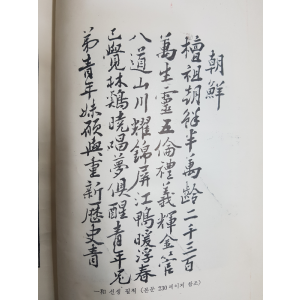 朝鮮
檀祖朝鮮半萬齡二千三百
萬生靈五倫禮義輝金管
八道山川耀錦屏江鴨暖浮春
已覺林鷄曉唱夢俱醒青年兄
弟青年妹願與重新歷史青
선생 필적 (본문 230 페이지 참조)